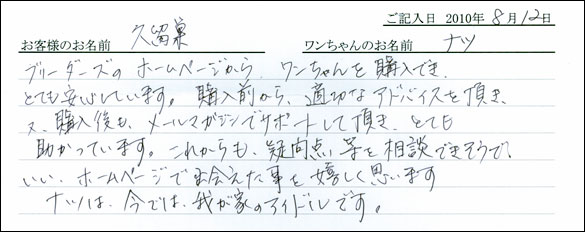 ご記入日 2010年 8月12日
お客様のお名前 久留巣 ワンちゃんのお名前 ナツ
ブリーダーズの ホームページから、ワンちゃんを購入でき、
とても安心しています。購入前から、適切なアドバイスを頂き、
又、購入後も、メールマガジンでサポートして頂き、とても
助かっています。これからも、疑問点等を相談できそうで、
いい、ホームページで出会えた事を嬉しく思います
ナツは、今では、我が家のアイドルです。